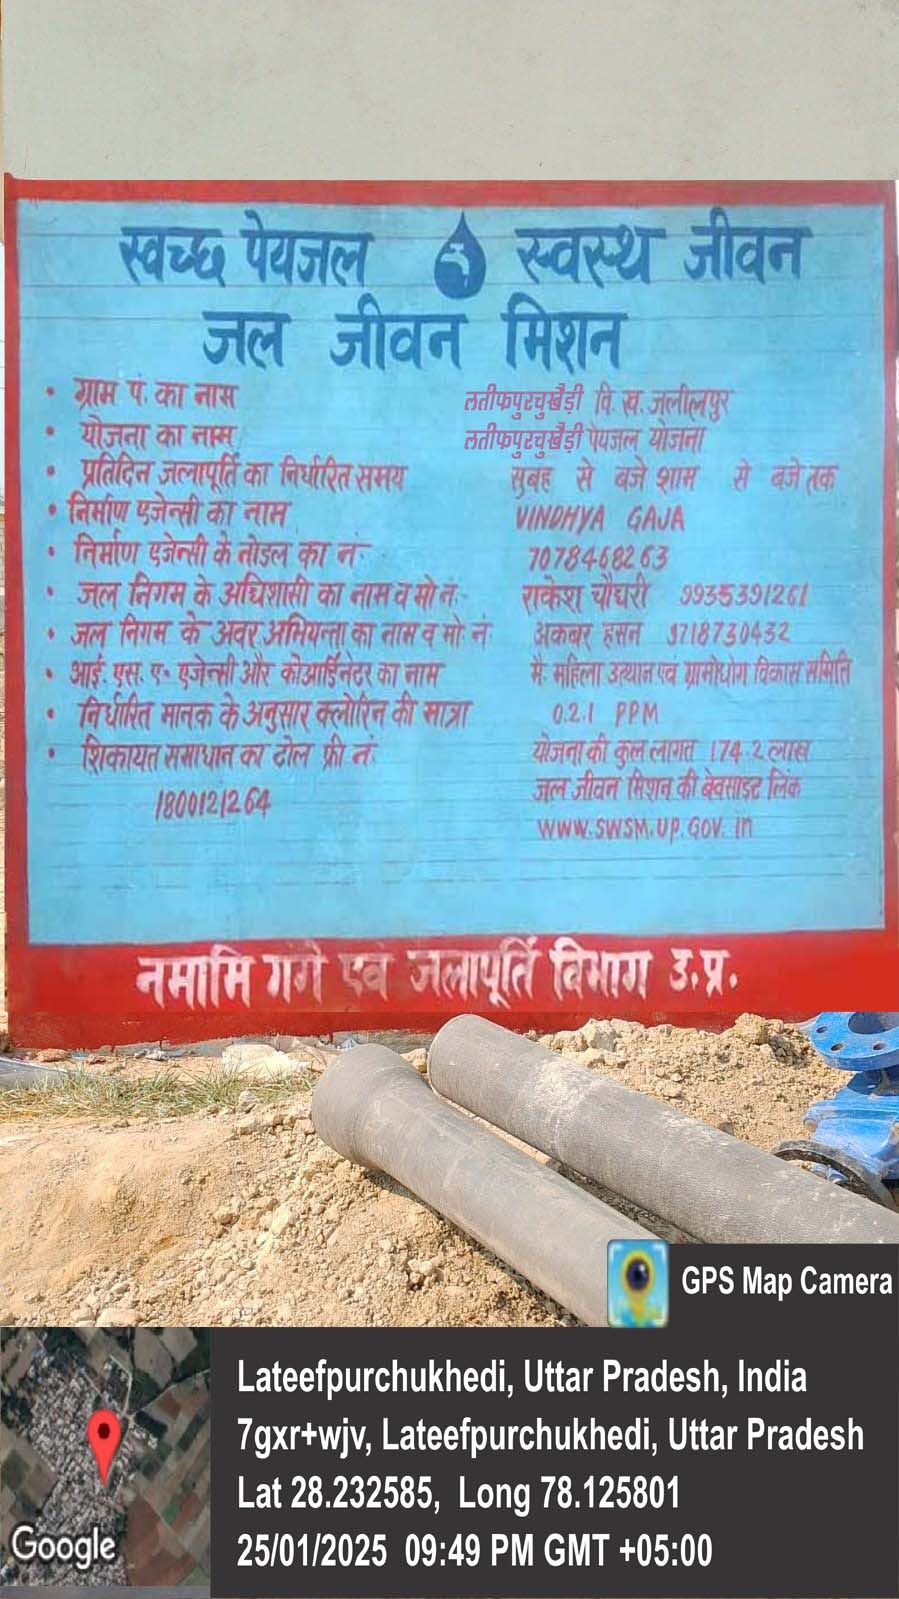 स्वच्छ पेयजल स्वस्थ जीवन
जल जीवन मिशन
• ग्राम पं. का नाम लतीफपुरचुखैड़ी वि. ख. जलीलपुर
• योजना का नाम लतीफपुरचुखैड़ी पेयजल योजना
• प्रतिदिन जलापूर्ति का निर्धारित समय सुबह से बजे शाम से बजे तक
• निर्माण एजेन्सी का नाम VINDHYA GAJA
• निर्माण एजेन्सी के नोडल का नं- 7078468263
• जल निगम के अधिशासी का नाम व मो नं.- राकेश चौधरी 9935391261
• जल निगम के अवर अभियन्ता का नाम व मो. नं. अकबर हसन 9718730432
• आई. एस. ए. एजेन्सी और कोआर्डिनेटर का नाम मै. महिला उत्थान एवं ग्रामोधोग विकास समिति
• निर्धारित मानक के अनुसार क्लोरिन की मात्रा 0.2.1 PPM
• शिकायत समाधान का टोल फ्री नं. योजना की कुल लागत 174.2 लाख
जल जीवन मिशन की वेबसाइट लिंक
1800121264
WWW.SWSM.UP.GOV.in
नमामि गंगे एवं जलापूर्ति विभाग उ.प्र.
GPS Map Camera
Google
Lateefpurchukhedi, Uttar Pradesh, India
7gxr+wjv, Lateefpurchukhedi, Uttar Pradesh
Lat 28.232585, Long 78.125801
25/01/2025 09:49 PM GMT +05:00